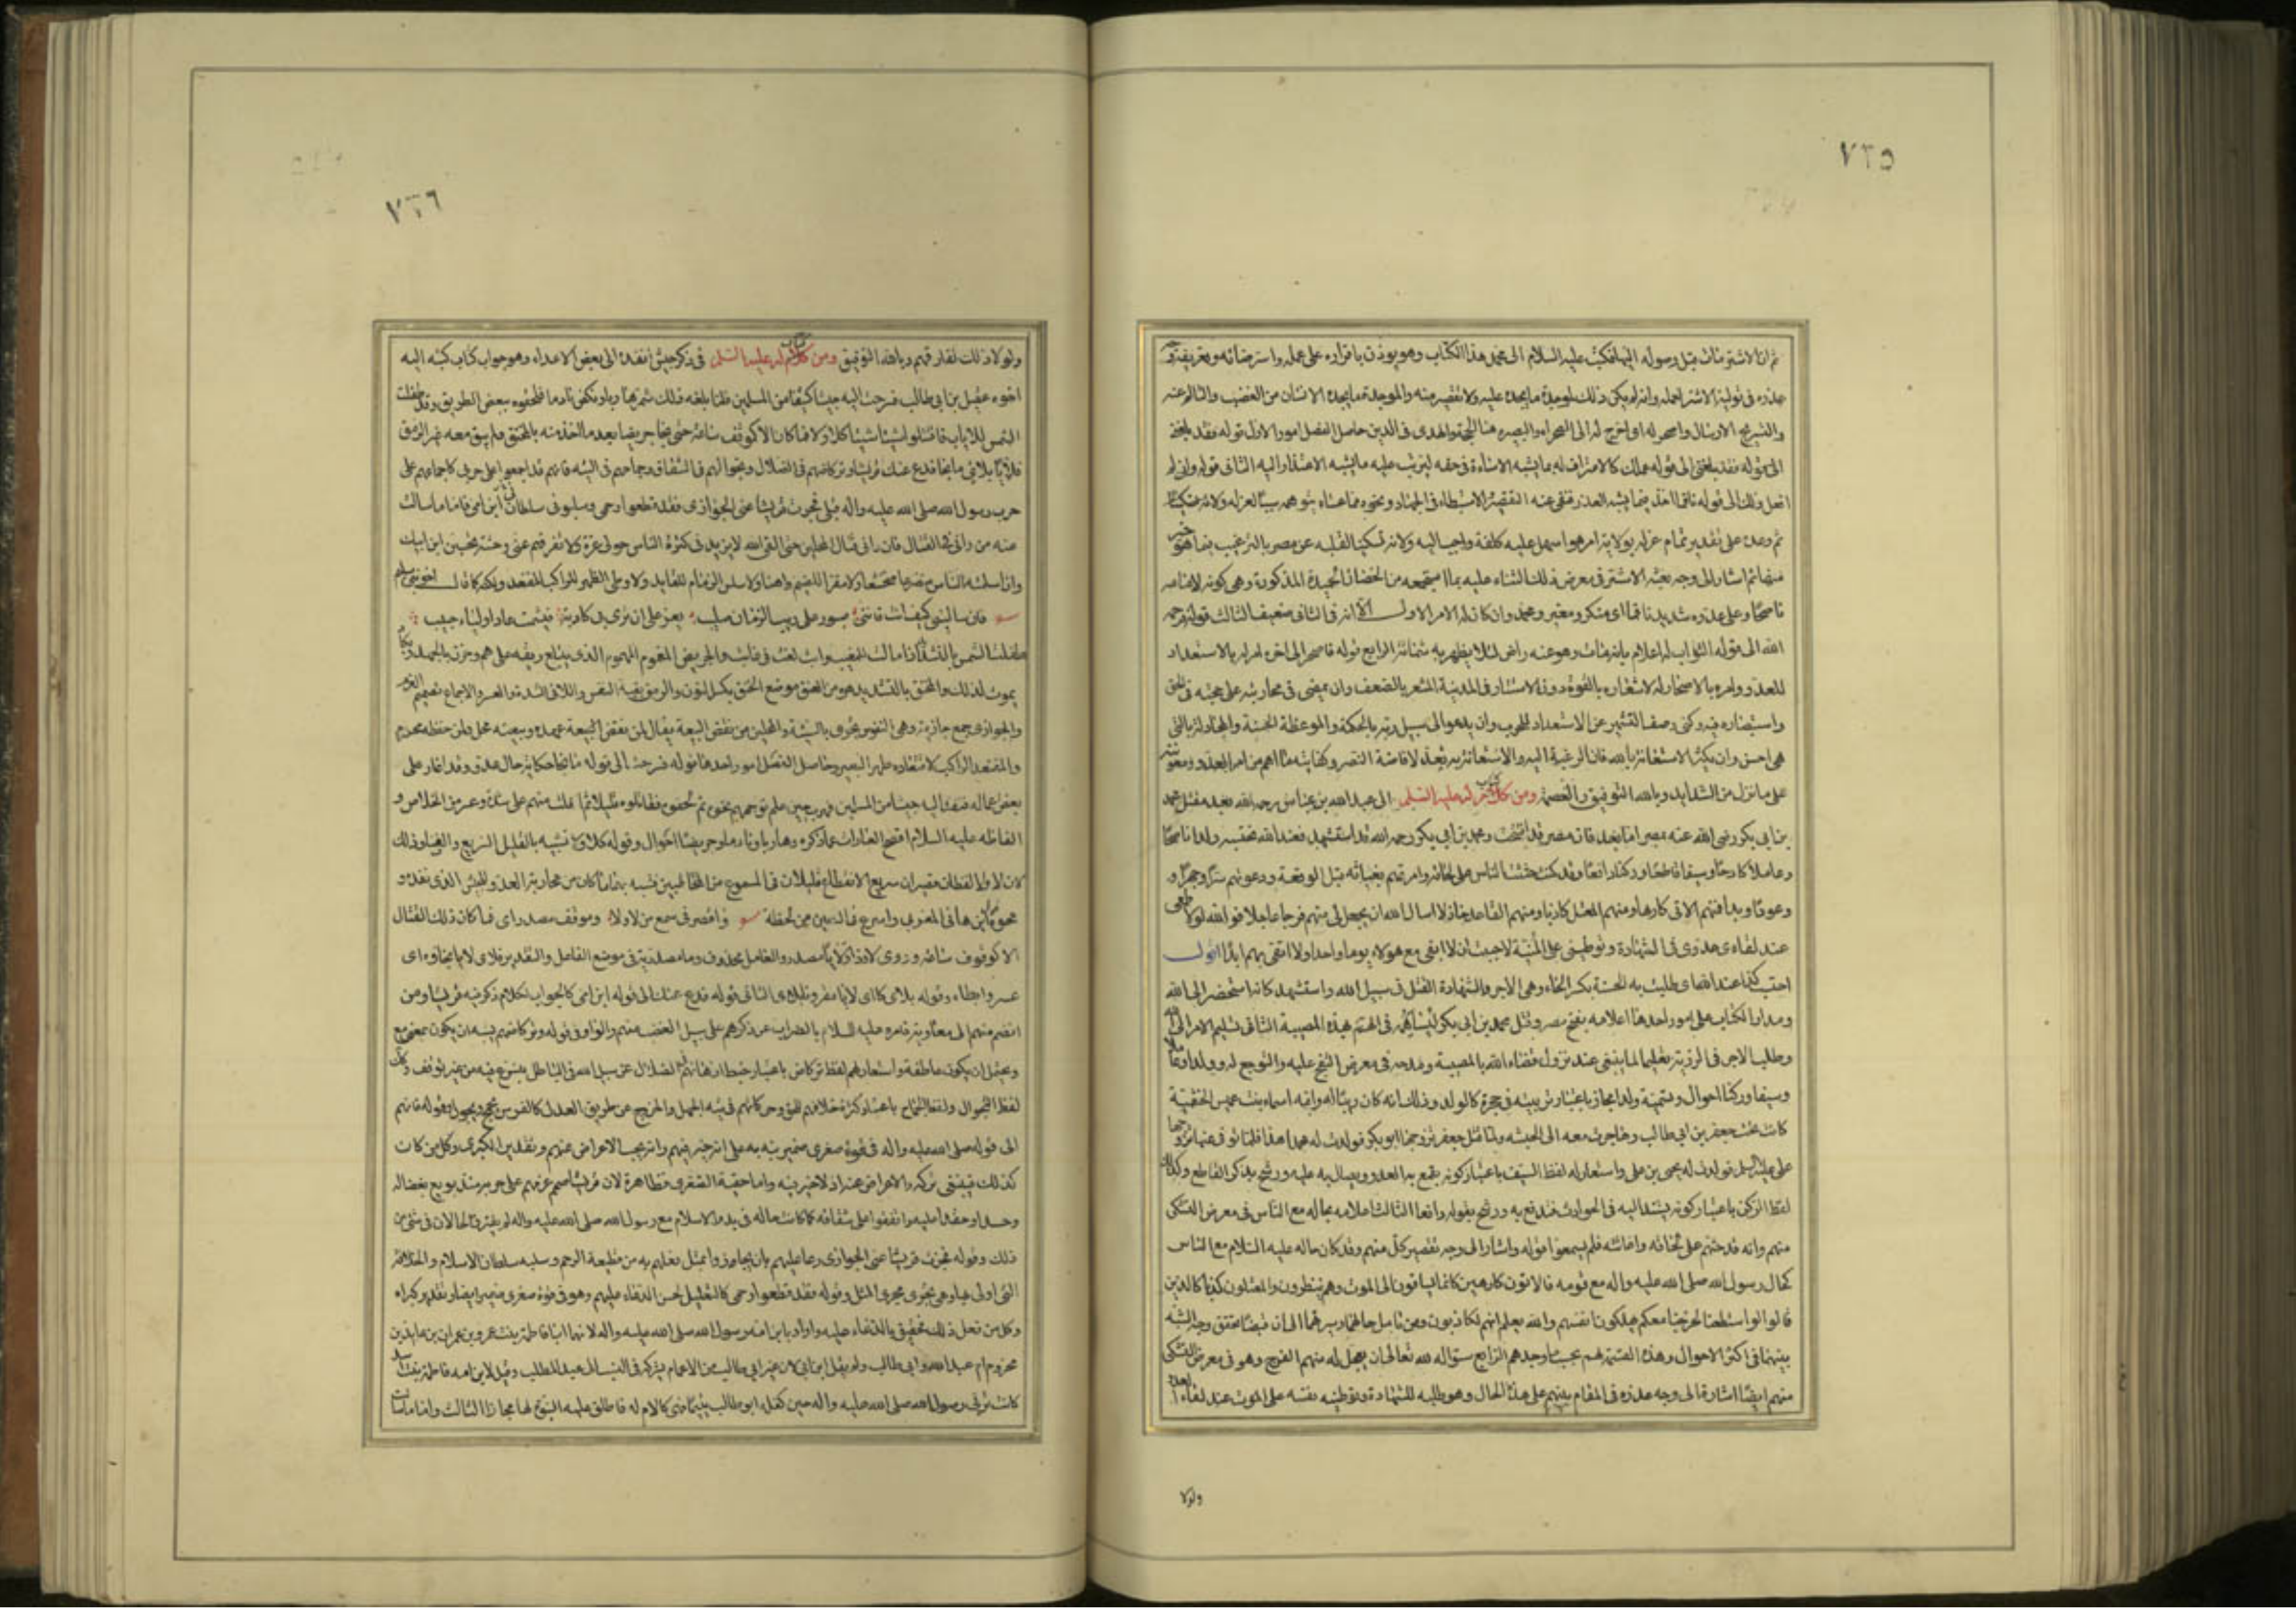 ٧٣٥
ثم ان الاشتر مات قبل وصوله اليها فكتب عليه السلام الى محمد هذا الكتاب وهو يوذن باقراره على عمله واسترضائه وتعريفه وجه
عذره فى تولية الاشتر لعمله وانه لم يكن ذلك لموجدة ما يجده عليه ولا لتقصير منه والموجدة ما يجده الانسان من الغضب والتالم عنه
والتسريح الارسال واصحر له اى اخرج له الى الصحراء والبصيرة هنا الحجة والهدى فى الدين حاصل الفصل امور الاول قوله فقد بلغنى
الى قوله عملك كالاعتراف له بما يشبه الاساءة فى حقه ليترتب عليه ما يشبه الاعتذار اليه الثانى قوله وانى لم
افعل ذلك الى قوله ناقما اخذ فيما يشبه العذر فنفى عنه التقصير والاستبطاء فى الجهاد ونحوه مما عساه يتوهمه سببا لعزله
ثم وعده على تقدير تمام عزله بولاية امر هو اسهل عليه كلفة واحب اليه ولاية تسكينا لقلبه عن مصر بالترغيب فيما هو خير
منها ثم اشار الى وجه بعثه الاشتر فى معرض ذلك الثناء عليه بما استجمعه من الخصال الحميدة المذكورة وهى كونه لامامه
ناصحا وعلى عدوه شديدا ناقما اى منكر ومغير ومحمد وان كان له الامر الاول الا انه فى الثانى ضعيف الثالث قوله فرحمه
الله الى قوله الثواب له اعلام بانه مات وهو عنه راض لئلا يظهر به شماتة الرابع قوله فاصحر الى اخره امر له بالاستعداد
للعدو وامره بالاصحار له لاشعاره بالقوة دون الاستتار فى المدينة المشعر بالضعف وان يمضى فى محاربته على حجته فى الحق
واستبصاره فيه وكنى بوصف التشمير عن الاستعداد للحرب وان يدعو الى سبيل ربه بالحكمة والموعظة الحسنة والمجادلة بالتى
هى احسن وان يكثر الاستعانة بالله فان الرغبة اليه والاستعانة به يعد لافاضة النصر وكفاية ما اهم من امر العدو ومعونته
على ما نزل من الشدايد وبالله التوفيق والعصمة ومن كتاب له عليه السلم الى عبد الله بن عباس رحمه الله بعد مقتل محمد
بن ابى بكر رضى الله عنه بمصر اما بعد فان مصر قد افتتحت ومحمد بن ابى بكر رحمه الله قد استشهد فعند الله نحتسبه ولدا ناصحا
وعاملا كادحا وسيفا قاطعا وركنا دافعا وقد كنت حثثت الناس على لحاقه وامرتهم بغياثه قبل الوقعة ودعوتهم سرا وجهرا و
عودا وبدا فمنهم الاتى كارها ومنهم المعتل كاذبا ومنهم القاعد خاذلا اسال الله ان يجعل لى منهم فرجا عاجلا فوالله لولا طمعى
عند لقاءى عدوى فى الشهادة وتوطينى على المنية لاحببت ان لا ابقى مع هولاء يوما واحدا ولا التقى بهم ابدا اقول
احتسب كذا عند الله اى طلبت به الحسبة بكسر الحاء وهى الاجر والشهادة القتل فى سبيل الله واستشهد كانه استحضر الى الله
ومدار الكتاب على امور احدها اعلامه بفتح مصر وقتل محمد بن ابى بكر ليشاركه فى الهم بهذه المصيبة الثانى تسليم الامر الى الله
وطلب الاجر فى الرزية تعليما لما ينبغى عند نزول قضاء الله بالمصيبة ومدحه فى معرض التفجع عليه والتوجع له وولدا وعاملا
وسيفا وركنا احوال وتسمية ولدا مجاز باعتبار تربيته فى حجره كالولد وذلك انه كان ربيبا له وامه اسماء بنت عميس الخثعمية
كانت تحت جعفر بن ابى طالب وهاجرت معه الى الحبشه ولما قتل جعفر تزوجها ابو بكر فولدت له محمدا هذا فلما توفى عنها تزوجها
على عليه السلم فولدت له يحيى بن على واستعار له لفظ السيف باعتبار كونه يقمع به العدو ويصال به عليه ورشح بذكر القاطع وكذلك
لفظ الركن باعتبار كونه يستند اليه فى الحوادث فتدفع به ورشح بقوله دافعا الثالث اعلامه بحاله مع الناس فى معرض التشكى
منهم وانه قد حثهم على لحاقه واغاثته فلم يسمعوا قوله واشار الى وجه تقصير كل منهم وقد كان حاله عليه السلام مع الناس
كحال رسول الله صلى الله عليه واله مع قومه فالاتون كارهين كانما يساقون الى الموت وهم ينظرون والمعتلون كذبا كالذين
قالوا لو استطعنا لخرجنا معكم يهلكون انفسهم والله يعلم انهم لكاذبون ومن تامل حالهما
بينهما فى اكثر الاحوال وهذه القسمة لهم بحسب ما وجدهم الرابع سؤاله لله تعالى ان يجعل له منهم الفرج وهو فى معرض التشكى
منهم ايضا اشارة الى وجه عذره فى المقام بينهم على هذا الحال وهو طلبه للشهادة وتوطينه نفسه على الموت عند لقاء العدو
ولولا
٧٣٦
ولولا ذلك لفارقهم وبالله التوفيق ومن كتاب له عليه السلم فى ذكر جيش انفذه الى بعض الاعداء وهو جواب كتاب كتبه اليه
اخوه عقيل بن ابى طالب فسرحت اليه جيشا كثيفا من المسلمين فلما بلغه ذلك شمر هاربا ونكص نادما فلحقوه ببعض الطريق وقد طفلت
الشمس للاياب فاقتتلوا شيئا كلا ولا فما كان الا كوقف ساعة حتى نجا جريضا بعد ما اخذ منه بالمخنق فلم يبق معه غير الرمق
فلايا بلاى ما نجا فدع عنك قريشا وتركاضهم فى الضلال وتجوالهم فى الشقاق وجماحهم فى التيه فانهم قد اجمعوا على حربى كاجماعهم على
حرب رسول الله صلى الله عليه واله قبلى فجزت قريشا عنى الجوازى فقد قطعوا رحمى وسلبونى سلطان ابن امى فاما ما سالت
عنه من رائى فى القتال فان رائى قتال المحلين حتى القى الله لا يزيدنى كثرة الناس حولى عزة ولا تفرقهم عنى وحشة ولا تحسبن ابن ابيك
وان اسلمه الناس متضرعا متخشعا ولا مقرا للضيم واهنا ولا سلس الزمام للقايد ولا وطى الظهر للراكب المقتعد ولكنه كما قال اخو بنى سليم
فان تسالينى كيف انت فاننى صبور على ريب الزمان صليب يعز على ان ترى بى كابة فيشمت عاد او يساء حبيب
طفلت الشمس بالتشديد اذا مالت للمغيب وابت لغة فى غابت والجريض المغموم المهموم الذى يبتلع ريقه على هم وحزن بالجهد ويكاد
يموت لذلك والمخنق بالتشديد هو من العنق موضع الخنق بكسر النون والرمق بقية النفس واللاى الشدة والعسر والاجماع تصميم العزم
والجوازى جمع جازية وهى النفوس تجزى بالسيئة والمحلين من نقض البيعة يقال لمن نقض البيعة عهده وبيعته محل ولمن حفظه محرم
والمقتعد الراكب لاقتعاده ظهر البعير وحاصل الفصل امور احدها قوله فسرحت الى قوله ما نجا حكاية حال عدو قد اغار على
بعض اعماله فنفذ اليه جيشا من المسلمين فهرب حين علم توجههم نحوه ثم لحقوه فقاتلوه قليلا ثم افلت منهم على شدة وعسر من الخلاص و
الفاظه عليه السلام افصح العبارات عما ذكره وهاربا ونادما وجريضا احوال وقوله كلا ولا تشبيه بالقليل السريع والفناء وذلك
لان لا ولا لفظان قصيران سريع الانقطاع قليلان فى المسموع من المخاطبين فشبه بهما ما كان من محاربة العدو للجيش الذى نفذه و
نحوه قول ابن هانى المغربى واسرع فى العين من لحظة واقصر فى سمع من لا ولا وموقف مصدر اى فما كان ذلك القتال
الا كوقوف ساعة وروى لا وذا ولايا مصدر والعامل محذوف وما مصدرية فى موضع الفاعل والتقدير فلاى لايا نجاؤه اى
عسر وابطاء وقوله بلاى الثانى قوله فدع عنك الى قوله ابن امى كالجواب لكلام ذكر فيه قريشا ومن
انضم منهم الى معاوية فامره عليه السلام بالضراب عن ذكرهم على سبيل الغضب منهم والواو فى قوله وتركاضهم يشبه ان يكون بمعنى مع
ويحتمل ان يكون عاطفة واستعار لهم لفظ تركاض باعتبار خبط اذهانهم فى الضلال عن سبيل الله فى الباطل يتسرع فيه من غير توقف وكذلك
لفظ التجوال ولفظ الجماح باعتبار كثرة خلافهم للحق وحركاتهم فى تيه الجهل والخروج عن طريق العدل كالفرس يجمح ويجول وقوله فانهم
الى قوله صلى الله عليه واله فى قوة صغرى ضمير نبه به على انه لا خير فيهم وانه يجب الاعراض عنهم وتقدير الكبرى وكل من كان
كذلك فينبغى تركه والاعراض عنه اذ لا خير فيه واما حقية الصغرى فظاهرة لان قريشا صمم عزمهم على حربه منذ بويع بغضا له
وحسدا وحقدا عليه واتفقوا على شقاقه كما كانت حاله فى بدو الاسلام مع رسول الله صلى الله عليه واله لم يفترق الحالان فى شئ من
ذلك وقوله فجزت قريشا عنى الجوازى دعا عليهم بان يجازوا بمثل فعلهم به من قطيعة الرحم وسلبه سلطان الاسلام والخلافة
التى اولى بها وهى تجرى مجرى المثل وقوله فقد قطعوا رحمى كالتعليل لحسن الدعاء عليهم وهو فى قوة صغرى ضمير ايضا وتقدير كبراه
وكل من فعل ذلك فحقيق بالدعاء عليه واراد بابن امه رسول الله صلى الله عليه واله لانهما ابنا فاطمة بنت عمرو بن عمران بن عايذ بن
مخزوم ام عبد الله وابى طالب ولم يقل ابن ابى لان غير ابى طالب من الاعمام يشركه فى النسب الى عبد المطلب وقيل لان امه فاطمة بنت اسد
كانت تربى رسول الله صلى الله عليه واله حين كفله ابو طالب يتيما فهى كالام له فاطلق عليه البنوة لها مجازا الثالث واما ما سالت